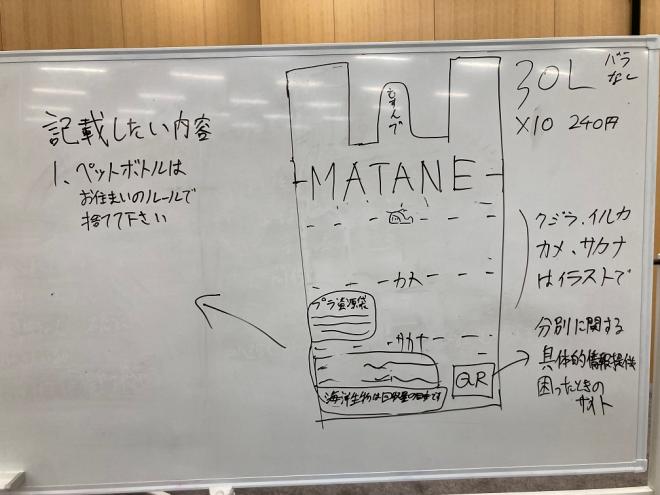 記載したい内容
1、ペットボトルは
お住まいのルールで
捨てて下さい
むすんで
MATANE
カメ
プラ資源袋
サカナ
海洋生物は回収量の目安です
QR
30L
バラ
なし
×10 240円
クジラ、イルカ
カメ、サカナ
はイラストで
分別に関する
具体的情報提供
困ったときの
サイト